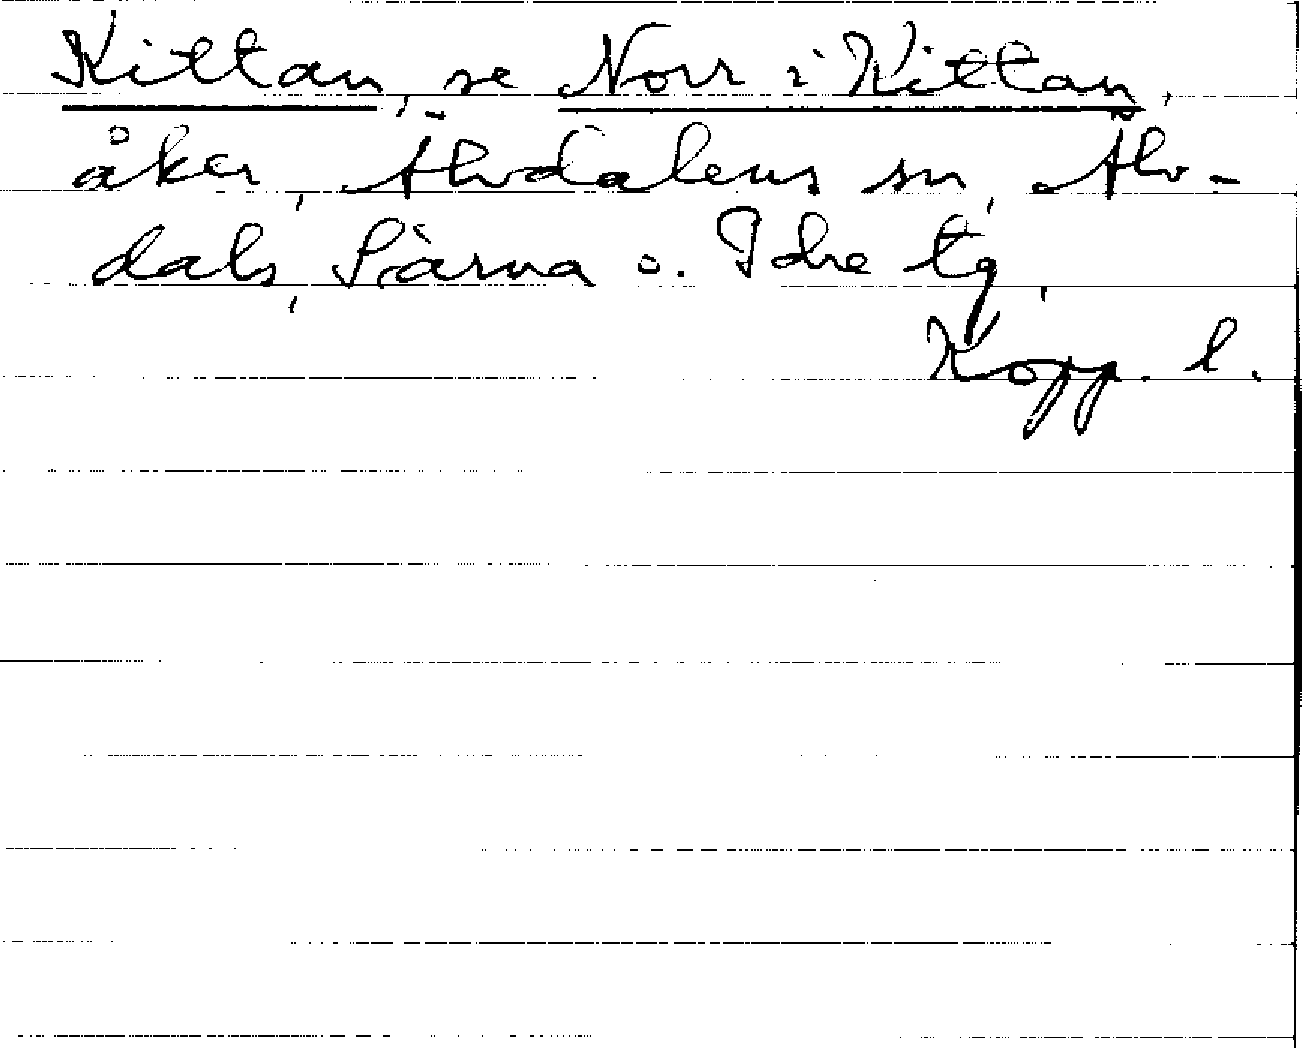 Kittan, se Norr i Kittan,
åker, Älvdalens sn, Älv-
dals, Särna o. Idre tg,
Kopp. l.